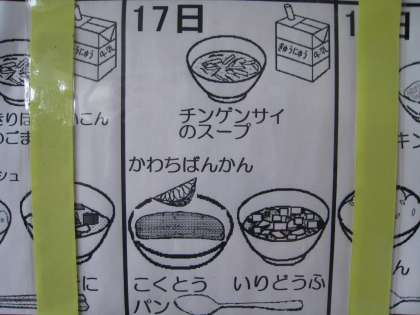 17日
1
ぎゅうにゅう
牛乳
チンゲンサイ
のスープ
かわちばんかん
こくとう
パン
いりどうふ
にゅう
牛乳
きりぼ
いこん
のごま
シュ
に
キン
ん